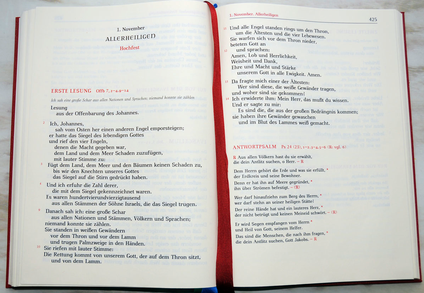 1. November
ALLERHEILIGEN
Hochfest
ERSTE LESUNG Offb 7, 2-4.9-14
Ich sah eine große Schar aus allen Nationen und Sprachen; niemand konnte sie zählen
Lesung
aus der Offenbarung des Johannes.
Ich, Johannes,
sah vom Osten her einen anderen Engel emporsteigen;
er hatte das Siegel des lebendigen Gottes
und rief den vier Engeln,
denen die Macht gegeben war,
dem Land und dem Meer Schaden zuzufügen,
mit lauter Stimme zu:
Fügt dem Land, dem Meer und den Bäumen keinen Schaden zu,
bis wir den Knechten unseres Gottes
das Siegel auf die Stirn gedrückt haben.
Und ich erfuhr die Zahl derer,
die mit dem Siegel gekennzeichnet waren.
Es waren hundertvierundvierzigtausend
aus allen Stämmen der Söhne Israels, die das Siegel trugen.
Danach sah ich: eine große Schar
aus allen Nationen und Stämmen, Völkern und Sprachen;
niemand konnte sie zählen.
Sie standen in weißen Gewändern
vor dem Thron und vor dem Lamm
und trugen Palmzweige in den Händen.
Sie riefen mit lauter Stimme:
Die Rettung kommt von unserem Gott, der auf dem Thron sitzt,
und von dem Lamm.
1. November: Allerheiligen
425
Und alle Engel standen rings um den Thron,
um die Ältesten und die vier Lebewesen.
Sie warfen sich vor dem Thron nieder,
beteten Gott an
und sprachen:
Amen, Lob und Herrlichkeit,
Weisheit und Dank,
Ehre und Macht und Stärke
unserem Gott in alle Ewigkeit. Amen.
Da fragte mich einer der Ältesten:
Wer sind diese, die weiße Gewänder tragen,
und woher sind sie gekommen?
Ich erwiderte ihm: Mein Herr, das mußt du wissen.
Und er sagte zu mir:
Es sind die, die aus der großen Bedrängnis kommen;
sie haben ihre Gewänder gewaschen
und im Blut des Lammes weiß gemacht.
ANTWORTPSALM
R Aus allen Völkern hast du sie erwählt,
die dein Antlitz suchen, o Herr. - R
Dem Herrn gehört die Erde und was sie erfüllt, *
der Erdkreis und seine Bewohner.
Denn er hat ihn auf Meere gegründet, *
ihn über Strömen befestigt. - (R)
Wer darf hinaufziehn zum Berg des Herrn, *
wer darf stehn an seiner heiligen Stätte?
Der reine Hände hat und ein lauteres Herz, *
der nicht betrügt und keinen Meineid schwört. - (R)
Er wird Segen empfangen vom Herrn *
und Heil von Gott, seinem Helfer.
Das sind die Menschen, die nach ihm fragen, *
die dein Antlitz suchen, Gott Jakobs. - R